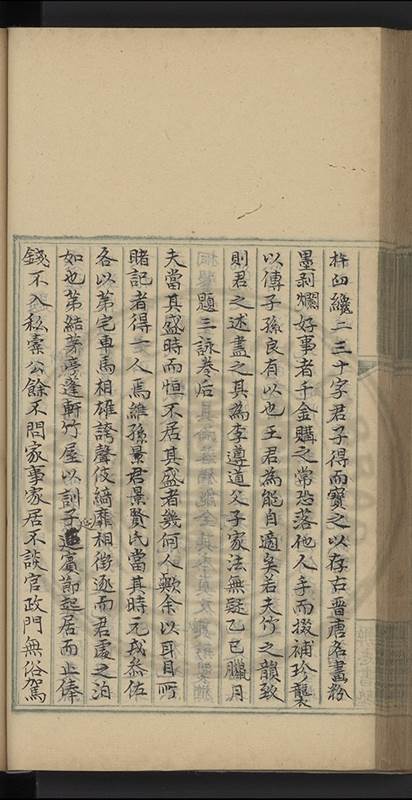 柞劒纔二三十字君子得而寶之以存古晉唐名畫粉
墨剥爛好事者千金購之常恐落他人手而掇補珍襲
以傳子孫良有以也王君為能自適矣若夫竹之韻致
則君之述盡之其為李遵道父子家法無疑乙巳臘月
題三詠卷后
夫當其盛時而恒不居其盛者幾何人歟余以耳目所
睹記者得一人焉維孫景君景賢氏當其時元戎叅佐
各以第宅車馬相雄誇聲伎綺靡相徵逐而君處之泊
如也第結茅索蓬軒竹屋以訓子延賓節起居而止俸
錢不入私橐公餘不問家事家居不談官政門無俗駕